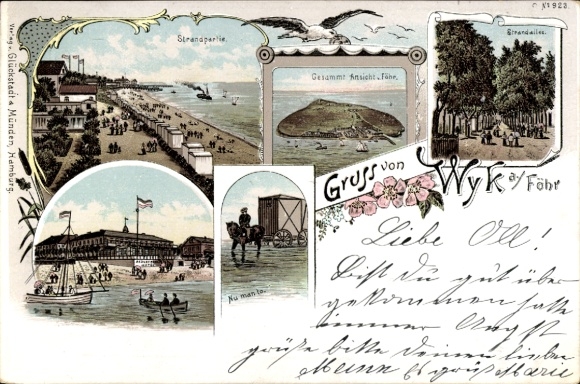 No 923.
Strandpartie.
Gesammt Ansicht v. Föhr.
Strandallee.
Verlag v. Glückstadt & Münden, Hamburg.
Gruss von Wyk a/ Föhr
Nu man to.
Liebe Oll!
Bist Du gut über
gekommen hatte
immer Angst
grüße bitte Deinen lieben
Mann Es grüßt Marie